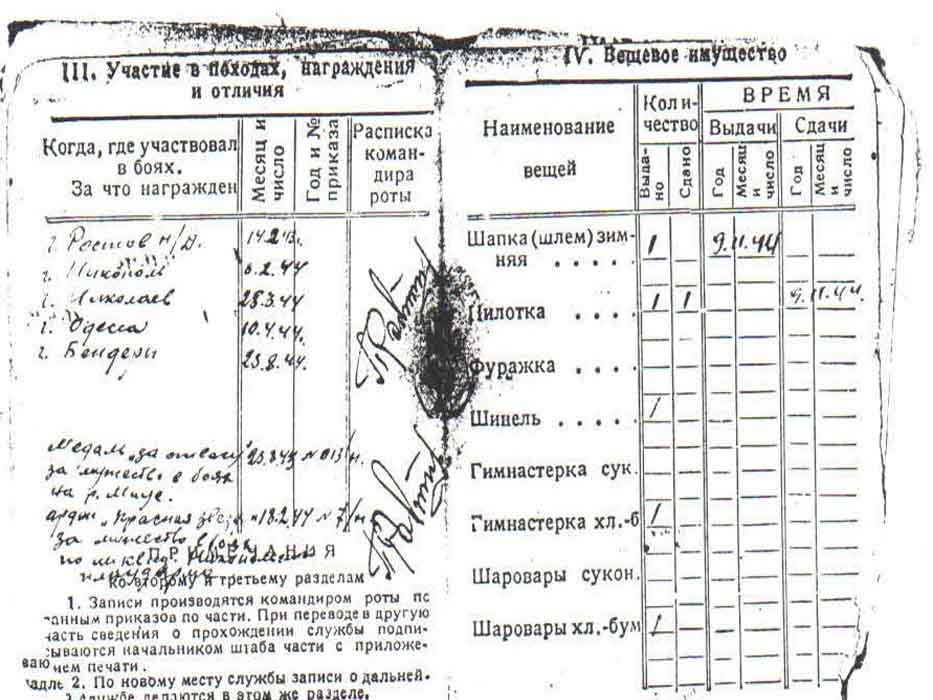 III. Участие в походах, награждения
и отличия
Когда, где участвовал
в боях.
За что награжден
Месяц и
число
Год и №
приказа
Расписка
коман-
дира
роты
г. Ростов н/Д. 14.2.43.
г. Никополь 8.2.44
г. Николаев 28.3.44
г. Одесса 10.4.44.
г. Бендеры 23.8.44.
Медаль „за отвагу"
за мужество в боях
на р. Миус.
орден „Красная звезда" 18.2.44 № 7/н
за мужество в боях
по ликвид. Никопольск.
плацдарма
ПРИМЕЧАНИЯ
ко второму и третьему разделам
1. Записи производятся командиром роты пс
анным приказов по части. При переводе в другую
часть сведения о прохождении службы подпи-
сываются начальником штаба части с приложе-
нием печати.
2. По новому месту службы записи о дальней-
службе делаются в этом же разделе.
IV. Вещевое имущество
Наименование
вещей
Количество
Выда-
но
Сдано
ВРЕМЯ
Выдачи
Сдачи
Год
Месяц
и
число
Год
Месяц
и
число
Шапка (шлем) зим-
няя . . . . . 1 9.11.44
Пилотка . . . . 1 1 9.11.44.
Фуражка . . . .
Шинель . . . . . 1
Гимнастерка сук.
Гимнастерка хл.-б 1
Шаровары сукон.
Шаровары хл.-бум 1